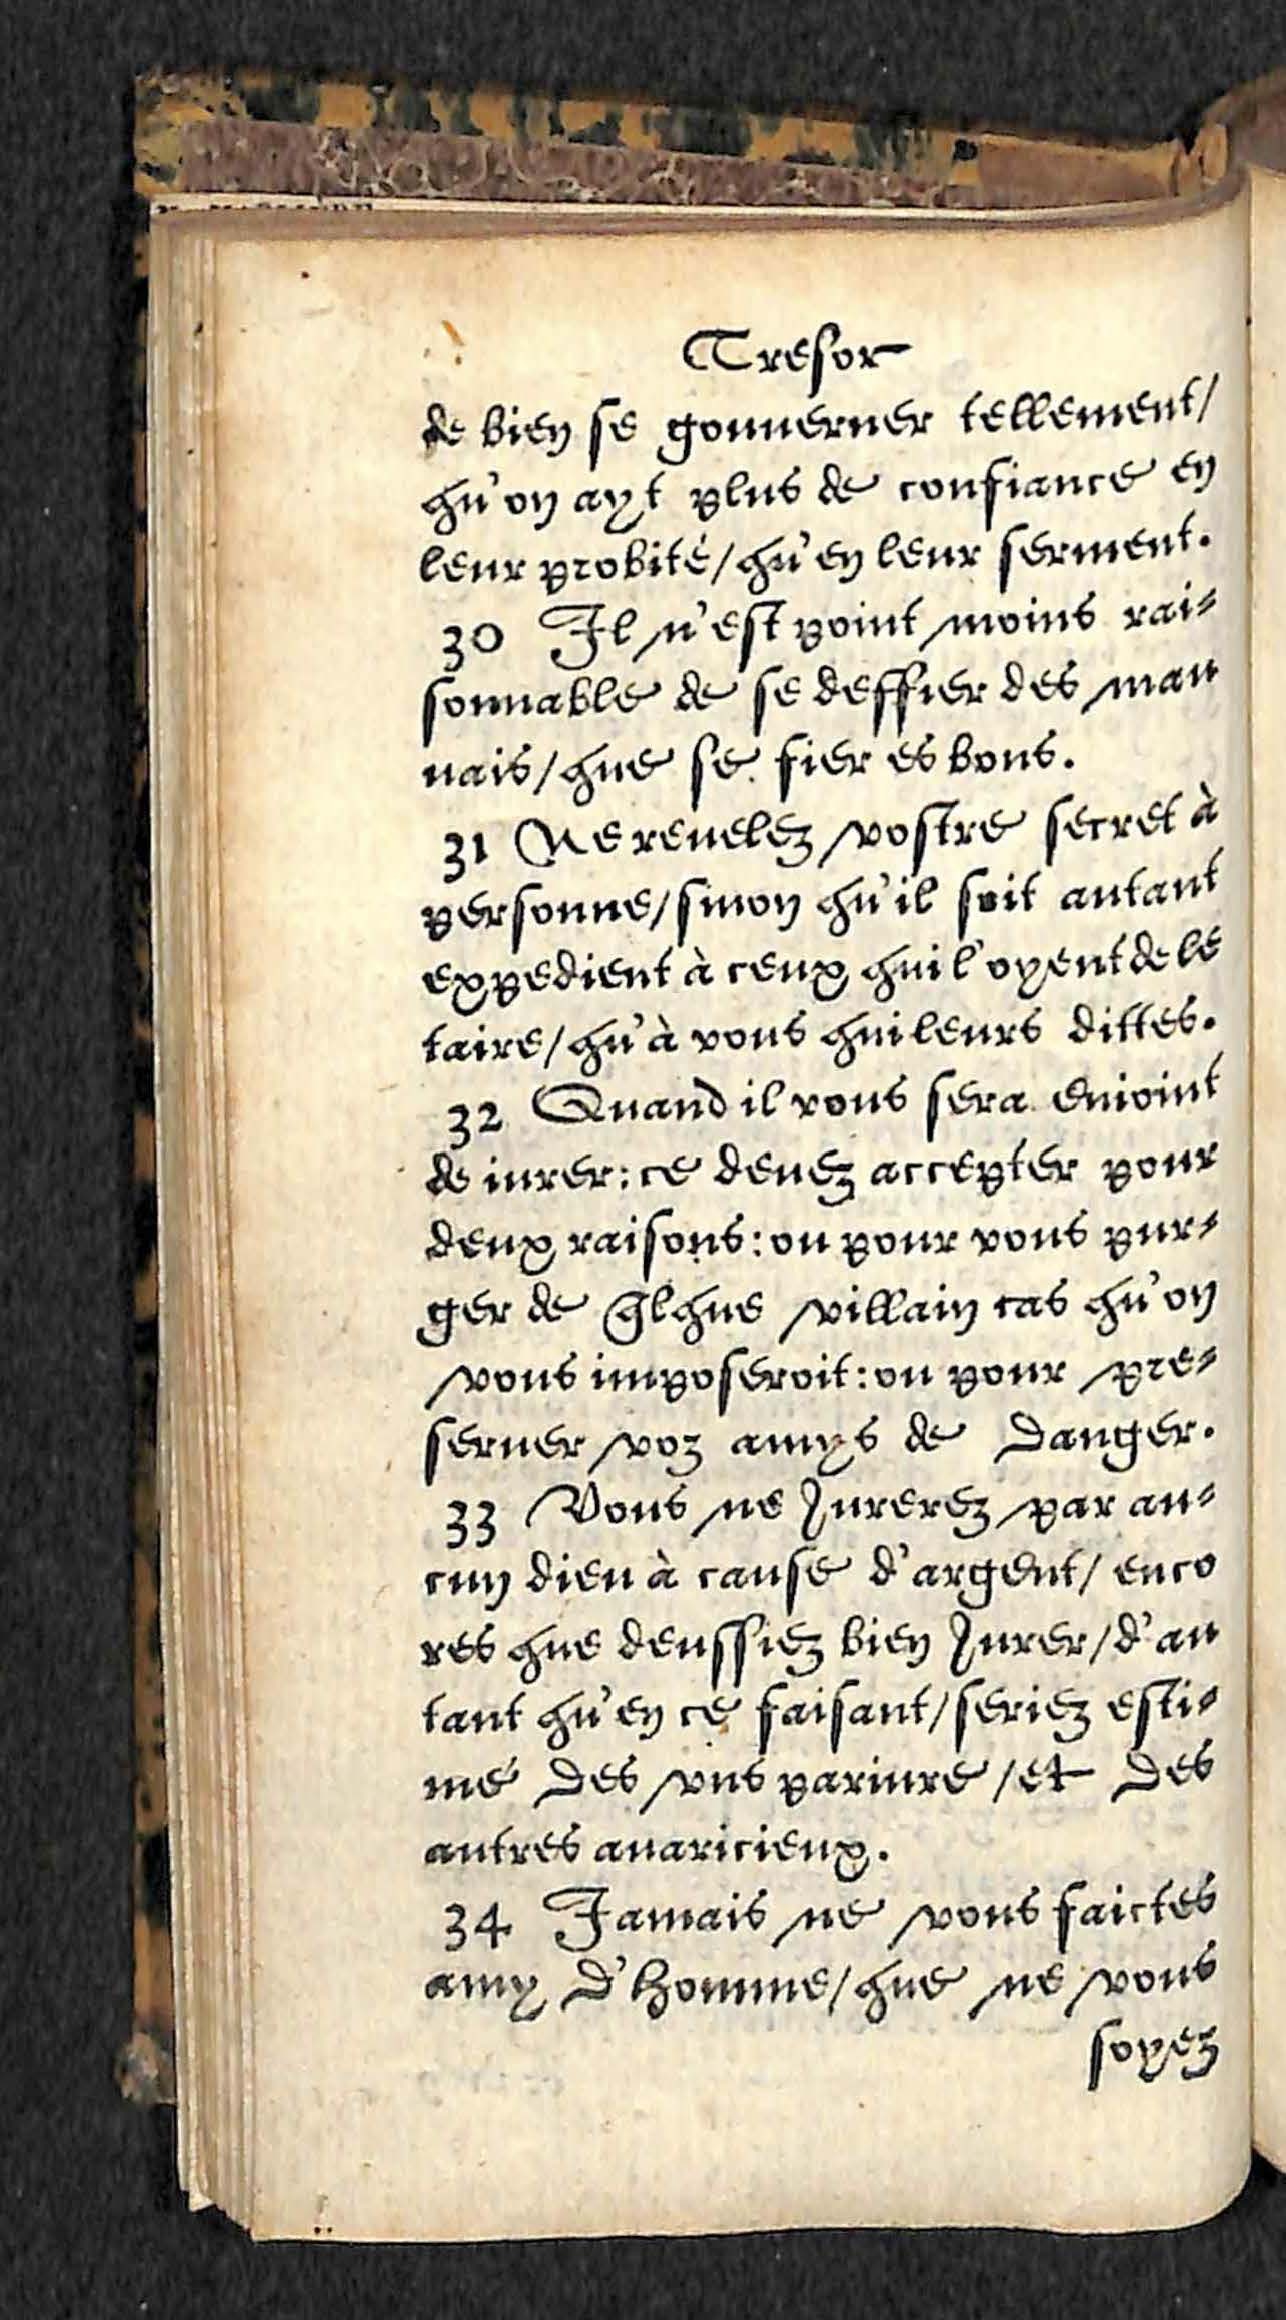 Tresor
de bien se gouuerner tellement/
qu'on ayt plus de confiance en
leur probité/qu'en leur serment.
30 Il n'est point moins rai-
sonnable de se deffier des mau
uais/que se fier es bons.
31 Ne reuelez vostre secret à
personne/sinon qu'il soit autant
expedient à ceux qui l'oyent de le
taire/qu'à vous qui leurs dittes.
32 Quand il vous sera enioint
de iurer: ce deuez accepter pour
deux raisons: ou pour vous pur-
ger de qlque villain cas qu'on
vous imposeroit: ou pour pre-
seruer voz amys de danger.
33 Vous ne Jurerez par au-
cun dieu à cause d'argent/ enco
res que deussiez bien Jurer/d'au
tant qu'en ce faisant/seriez esti-
mé des vns pariure/et des
autres auaricieux.
34 Jamais ne vous faictes
amy d'homme/que ne vous
soyez